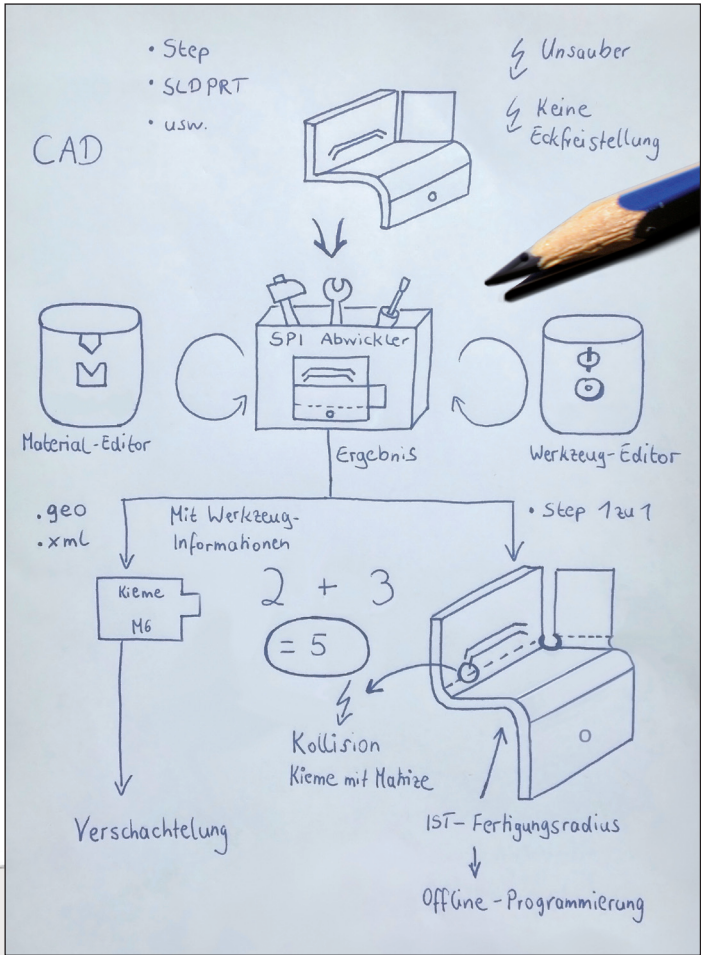 • Step
• SLDPRT
• usw.
CAD
Unsauber
Keine
Eckfreistellung
SPI Abwickler
Material-Editor
Werkzeug-Editor
Ergebnis
.geo
.xml
Mit Werkzeug-
Informationen
• Step 1zu1
Kieme
M6
2 + 3
= 5
Kollision
Kieme mit Matrize
Verschachtelung
IST-Fertigungsradius
Offline-Programmierung